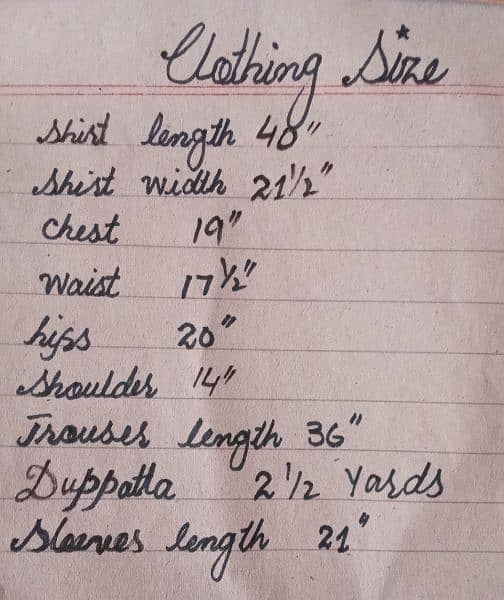 Clothing Size
Shirt length 40"
Shirt width 21 1/2"
Chest 19"
Waist 17 1/2"
hips 20"
Shoulder 14"
Trouser length 36"
Duppatta 2 1/2 Yards
Sleeves length 21"